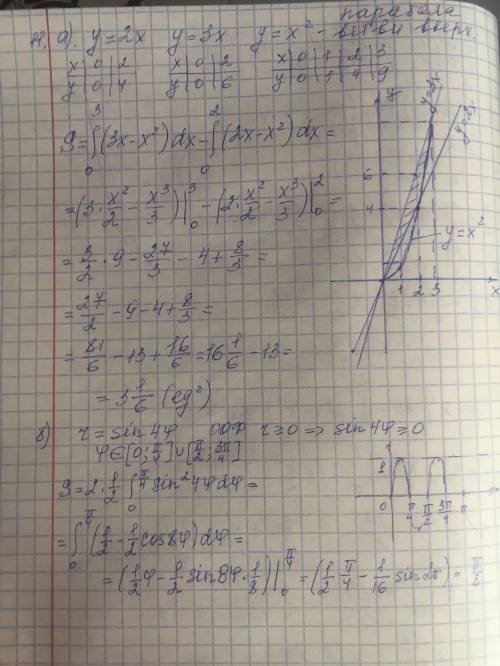 парабола
а) y=2x y=3x y=x² - ветви вверх
x|0|2 x|0|2 x|0|1|2|3
y|0|4 y|0|6 y|0|1|4|9
S=∫₀³(3x-x²)dx-∫₀²(2x-x²)dx=
=(3·x²/2-x³/3)|₀³-(2·x²/2-x³/3)|₀²=
=3/2·9-27/3-4+8/3=
=27/2-9-4+8/3=
=81/6-13+16/6=16 1/6-13=
=3 1/6 (eg²)
y
y=3x
y=2x
6
4
y=x²
1 2 3 x
0
б) r=sin4φ ООФ r≥0 ⇒ sin4φ≥0
φ∈[0;π/4]∪[π/2;3π/4]
S=2·1/2∫₀^(π/4) sin²4φdφ=
=∫₀^(π/4)(1/2-1/2cos8φ)dφ=
=(1/2φ-1/2sin8φ·1/8)|₀^(π/4)=(1/2·π/4-1/16sin2π)=π/8
1
0 π/4 π/2 3π/4 π